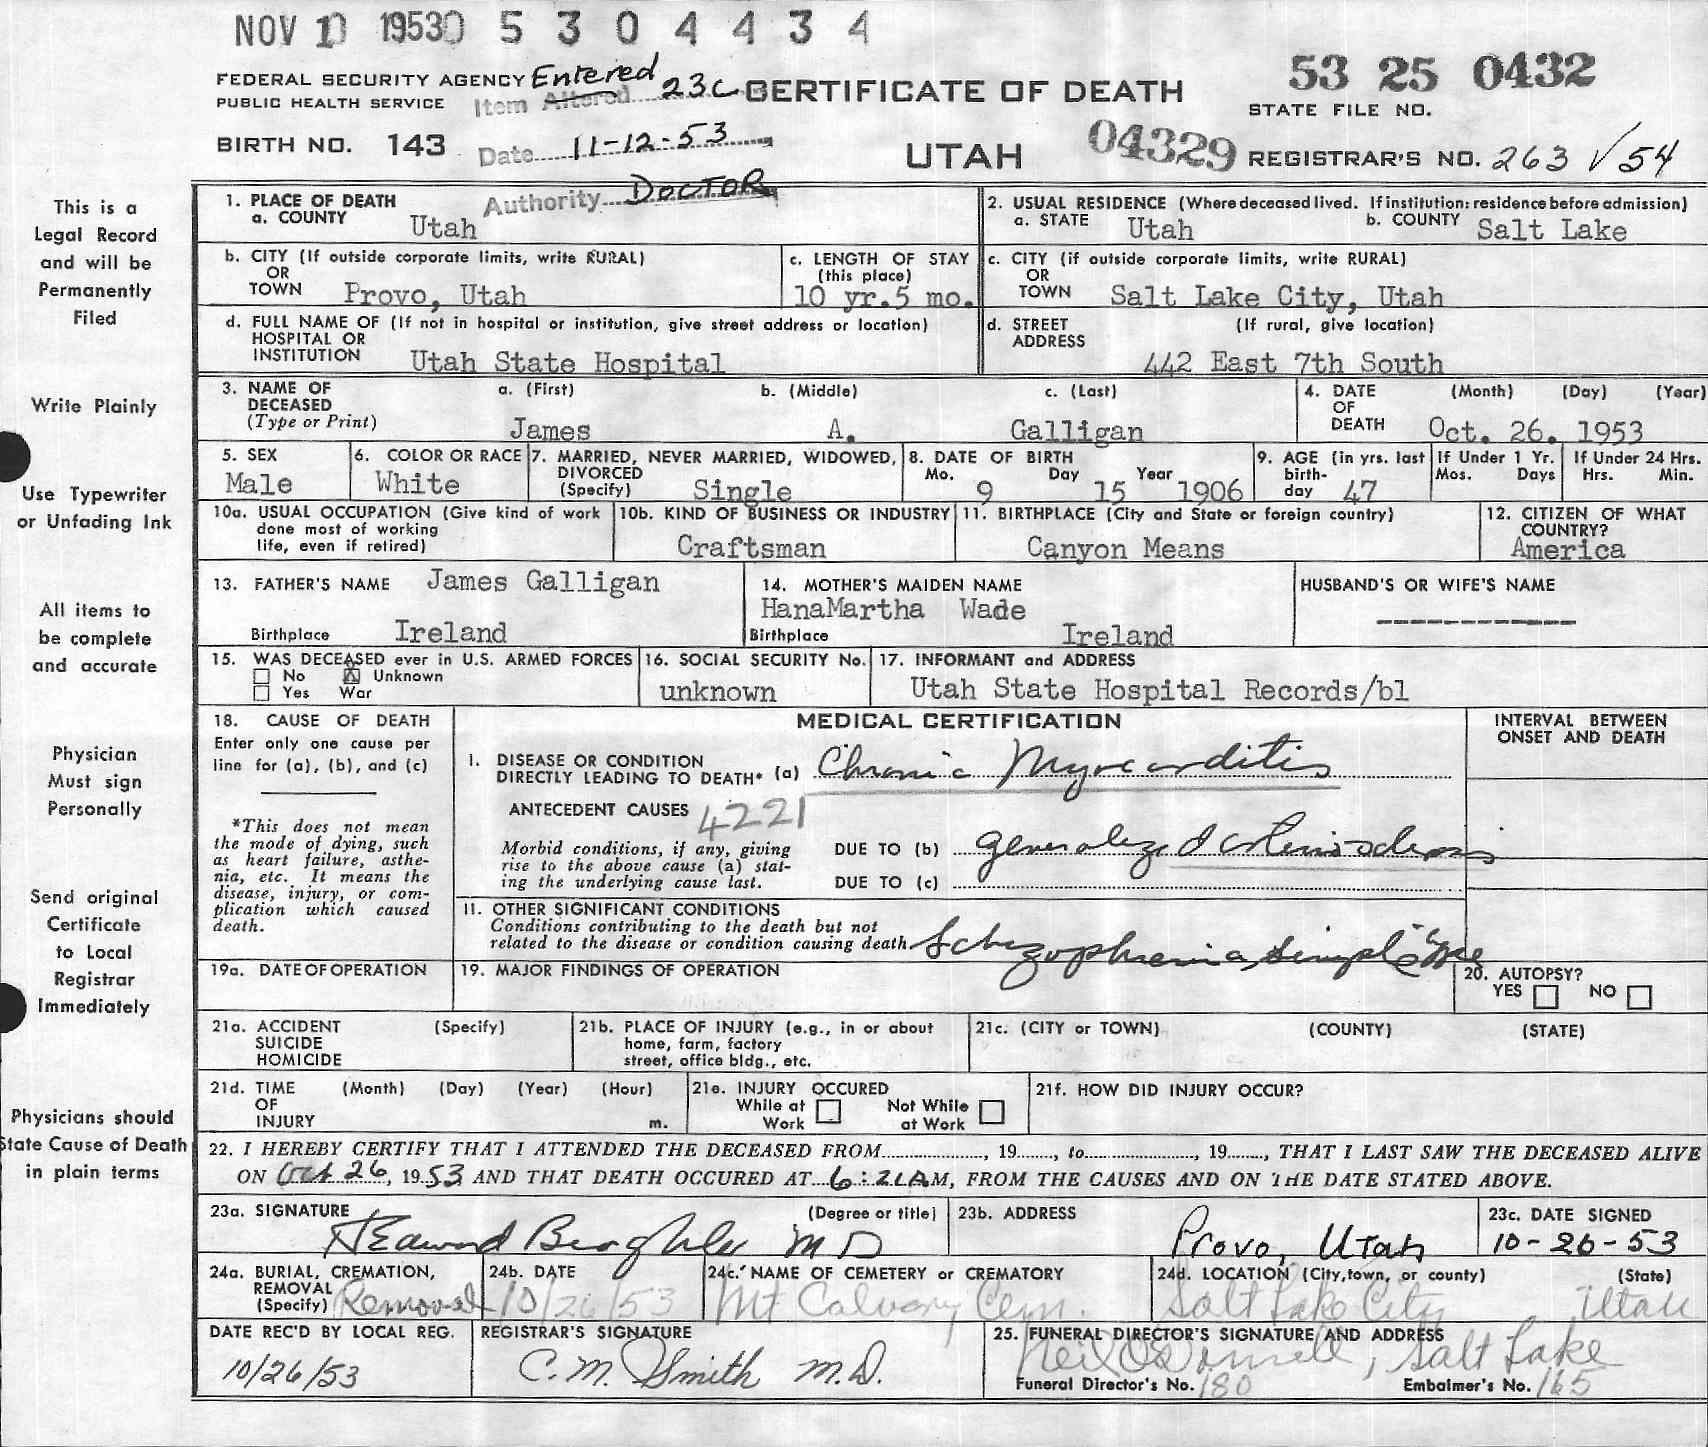 NOV 10 1953 0 5 3 0 4 4 3 4
FEDERAL SECURITY AGENCY Entered 23c CERTIFICATE OF DEATH 53 25 0432
PUBLIC HEALTH SERVICE Item Altered STATE FILE NO.
BIRTH NO. 143 Date 11-12-53 UTAH 04329 REGISTRAR'S NO. 263 √54
Authority DOCTOR
This is a
Legal Record
and will be
Permanently
Filed
Write Plainly
Use Typewriter
or Unfading Ink
All items to
be complete
and accurate
Physician
Must sign
Personally
Send original
Certificate
to Local
Registrar
Immediately
Physicians should
State Cause of Death
in plain terms
1. PLACE OF DEATH
a. COUNTY Utah
2. USUAL RESIDENCE (Where deceased lived. If institution: residence before admission)
a. STATE Utah b. COUNTY Salt Lake
b. CITY (If outside corporate limits, write RURAL)
OR
TOWN Provo, Utah
c. LENGTH OF STAY
(this place)
10 yr.5 mo.
c. CITY (if outside corporate limits, write RURAL)
OR
TOWN Salt Lake City, Utah
d. FULL NAME OF (If not in hospital or institution, give street address or location)
HOSPITAL OR
INSTITUTION Utah State Hospital
d. STREET (If rural, give location)
ADDRESS
442 East 7th South
3. NAME OF a. (First) b. (Middle) c. (Last)
DECEASED
(Type or Print) James A. Galligan
4. DATE (Month) (Day) (Year)
OF
DEATH Oct. 26. 1953
5. SEX
Male
6. COLOR OR RACE
White
7. MARRIED, NEVER MARRIED, WIDOWED,
DIVORCED
(Specify) Single
8. DATE OF BIRTH
Mo. Day Year
9 15 1906
9. AGE (in yrs. last
birth-
day 47
If Under 1 Yr.
Mos. Days
If Under 24 Hrs.
Hrs. Min.
10a. USUAL OCCUPATION (Give kind of work
done most of working
life, even if retired)
10b. KIND OF BUSINESS OR INDUSTRY
Craftsman
11. BIRTHPLACE (City and State or foreign country)
Canyon Means
12. CITIZEN OF WHAT
COUNTRY?
America
13. FATHER'S NAME James Galligan
Birthplace Ireland
14. MOTHER'S MAIDEN NAME
HanaMartha Wade
Birthplace Ireland
HUSBAND'S OR WIFE'S NAME
-------------
15. WAS DECEASED ever in U.S. ARMED FORCES
No X Unknown
Yes War
16. SOCIAL SECURITY No.
unknown
17. INFORMANT and ADDRESS
Utah State Hospital Records/bl
18. CAUSE OF DEATH
Enter only one cause per
line for (a), (b), and (c)
*This does not mean
the mode of dying, such
as heart failure, asthe-
nia, etc. It means the
disease, injury, or com-
plication which caused
death.
MEDICAL CERTIFICATION
INTERVAL BETWEEN
ONSET AND DEATH
I. DISEASE OR CONDITION
DIRECTLY LEADING TO DEATH* (a) Chronic Myocarditis
ANTECEDENT CAUSES 4221
Morbid conditions, if any, giving
rise to the above cause (a) stat-
ing the underlying cause last.
DUE TO (b) generalized arteriosclerosis
DUE TO (c)
II. OTHER SIGNIFICANT CONDITIONS
Conditions contributing to the death but not
related to the disease or condition causing death Schizophrenia, simple type
19a. DATE OF OPERATION
19. MAJOR FINDINGS OF OPERATION
20. AUTOPSY?
YES NO
21a. ACCIDENT (Specify)
SUICIDE
HOMICIDE
21b. PLACE OF INJURY (e.g., in or about
home, farm, factory
street, office bldg., etc.
21c. (CITY or TOWN) (COUNTY) (STATE)
21d. TIME (Month) (Day) (Year) (Hour)
OF
INJURY m.
21e. INJURY OCCURED
While at Work Not While at Work
21f. HOW DID INJURY OCCUR?
22. I HEREBY CERTIFY THAT I ATTENDED THE DECEASED FROM, 19, to, 19, THAT I LAST SAW THE DECEASED ALIVE
ON Oct 26, 1953 AND THAT DEATH OCCURED AT 6:21AM, FROM THE CAUSES AND ON THE DATE STATED ABOVE.
23a. SIGNATURE (Degree or title)
Edward MD
23b. ADDRESS
Provo, Utah
23c. DATE SIGNED
10-26-53
24a. BURIAL, CREMATION,
REMOVAL
(Specify) Removal
24b. DATE
10/26/53
24c. NAME OF CEMETERY or CREMATORY
Mt Calvary Cem.
24d. LOCATION (City, town, or county) (State)
Salt Lake City Utah
DATE REC'D BY LOCAL REG.
10/26/53
REGISTRAR'S SIGNATURE
C.M. Smith M.D.
25. FUNERAL DIRECTOR'S SIGNATURE AND ADDRESS
Neil O'Donnell, Salt Lake
Funeral Director's No. 180 Embalmer's No. 165